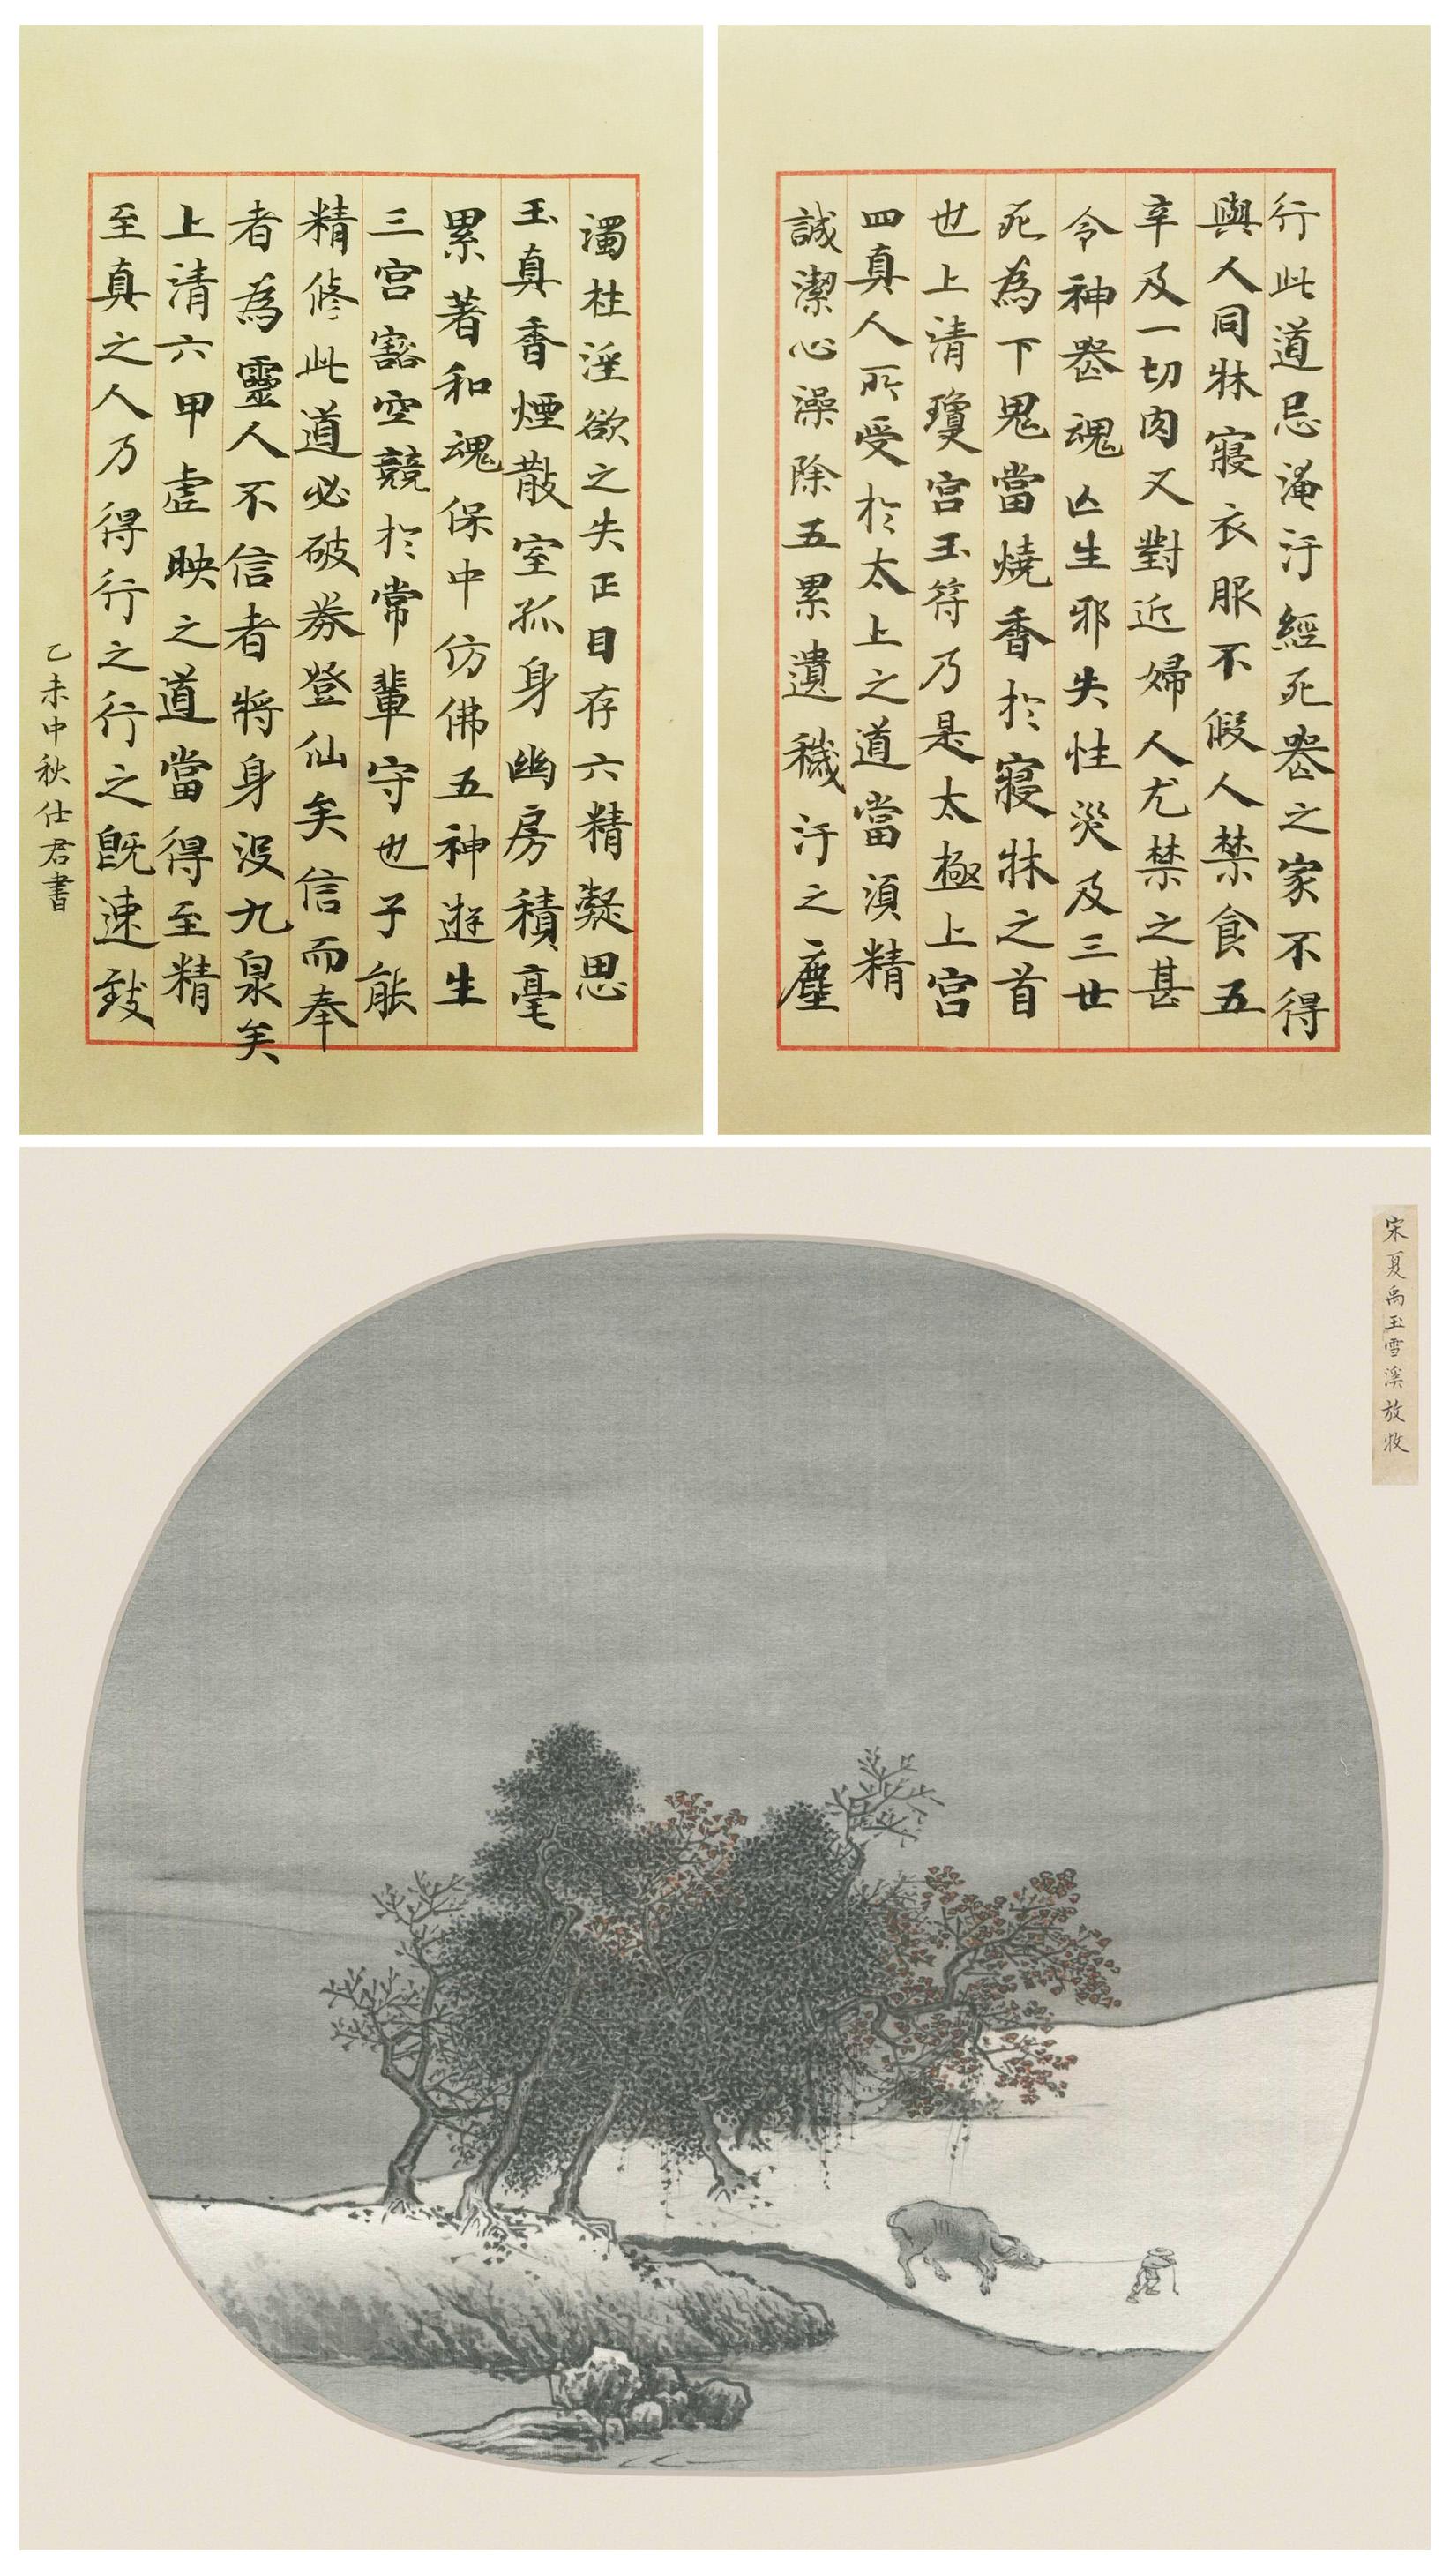 行此道忌淹汙經死喪之家不得
與人同牀寢衣服不假人禁食五
辛及一切肉又對近婦人尤禁之甚
令神喪魂亾生邪失性災及三世
死為下鬼當燒香於寢牀之首
也上清瓊宮玉符乃是太極上宮
四真人所受於太上之道當須精
誠潔心澡除五累遺穢汙之塵
濁杜淫欲之失正目存六精凝思
玉真香煙散室孤身幽房積毫
累著和魂保中仿佛五神遊生
三宮豁空競於常輩守也子能
精修此道必破券登仙矣信而奉
者為靈人不信者將身沒九泉矣
上清六甲虛映之道當得至精
至真之人乃得行之行之既速致
乙未中秋仕君書
宋夏禹玉雪溪放牧